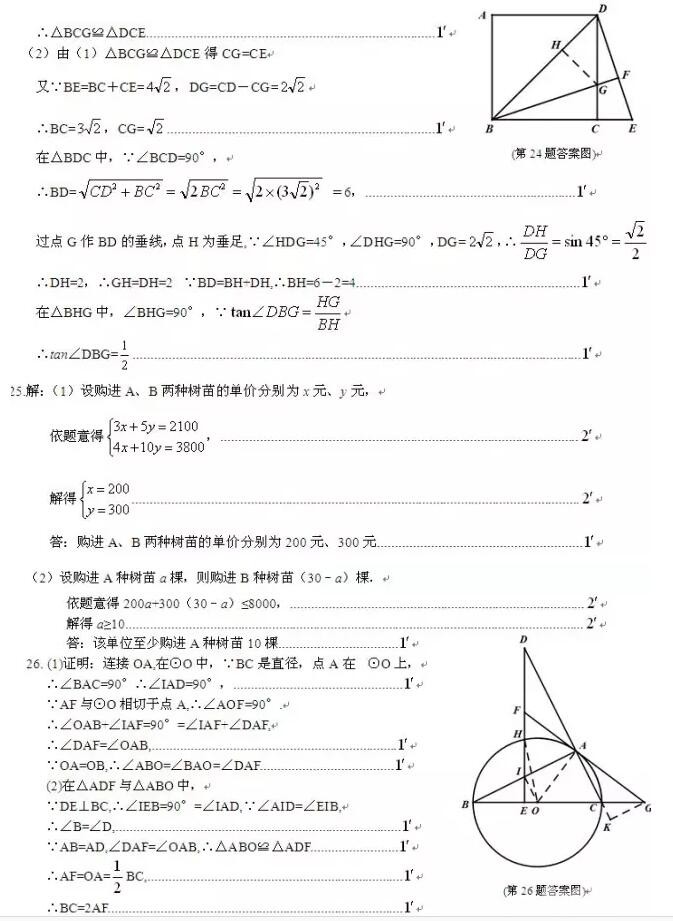 ∴△BCG≌△DCE.......1′
(2)由(1)△BCG≌△DCE得CG=CE
又∵BE=BC+CE=4√2，DG=CD−CG=2√2
∴BC=3√2，CG=√2.......1′
在△BDC中，∵∠BCD=90°，
∴BD=√(CD²+BC²)=√(2BC²)=√(2×(3√2)²) =6，.......1′
过点G作BD的垂线，点H为垂足，∵∠HDG=45°，∠DHG=90°，DG=2√2，∴DH/DG=sin 45°=√2/2
∴DH=2，∴GH=DH=2 ∵BD=BH+DH，∴BH=6−2=4.......1′
在△BHG中，∠BHG=90°，∵tan∠DBG=HG/BH
∴tan∠DBG=1/2.......1′
A D H F G B C E
(第24题答案图)
25.解：(1)设购进A、B两种树苗的单价分别为x元、y元，
依题意得{3x+5y=2100
4x+10y=3800，.......2′
解得{x=200
y=300.......2′
答：购进A、B两种树苗的单价分别为200元、300元.......1′
(2)设购进A种树苗a棵，则购进B种树苗(30﹣a)棵.
依题意得200a+300(30﹣a)≤8000，.......2′
解得a≥10.......2′
答：该单位至少购进A种树苗10棵.......1′
26. (1)证明：连接OA,在⊙O中，∵BC是直径，点A在 ⊙O上，
∴∠BAC=90°∴∠IAD=90°，.......1′
∵AF与⊙O相切于点A,∴∠AOF=90°.
∴∠OAB+∠IAF=90°=∠IAF+∠DAF,
∴∠DAF=∠OAB,.......1′
∵OA=OB,∴∠ABO=∠BAO=∠DAF.......1′
(2)在△ADF与△ABO中，
∵DE⊥BC,∴∠IEB=90°=∠IAD,∵∠AID=∠EIB,
∴∠B=∠D,.......1′
∵AB=AD,∠DAF=∠OAB,∴△ABO≌△ADF.......1′
∴AF=OA=1/2BC,.......1′
∴BC=2AF.......1′
D F H A I B E O C G K
(第26题答案图)